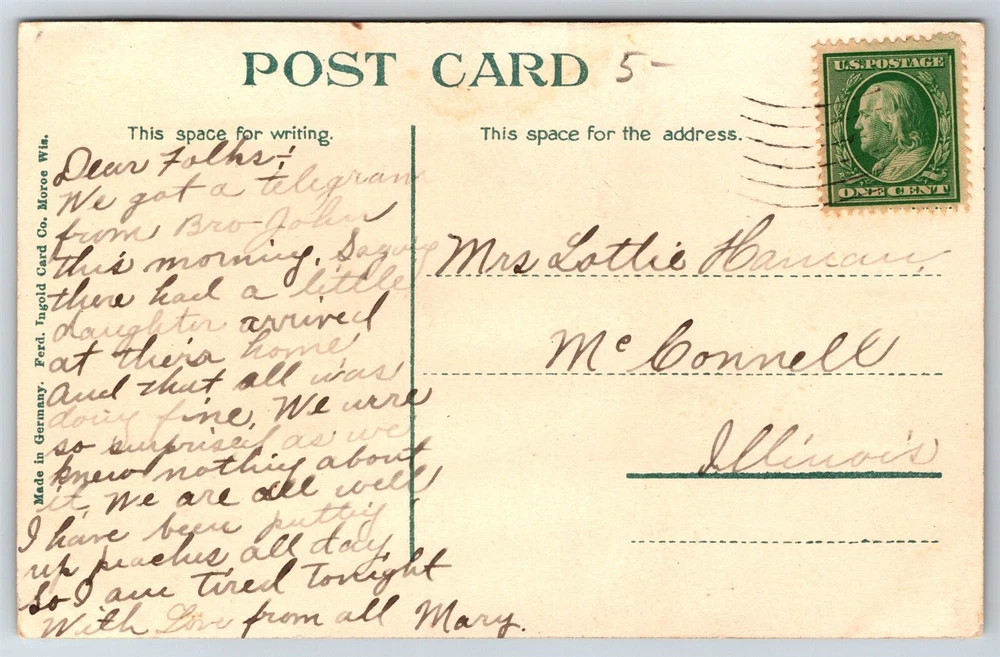 POST CARD 5-
U.S. POSTAGE
ONE CENT
This space for writing.
This space for the address.
Made in Germany. Ferd. Ingold Card Co. Moroe Wis.
Dear Folks -:
We got a telegram
from Bro John
this morning. Saying
there had a little
daughter arrived
at theira home
and that all was
doing fine. We wrre
so surprised as we
knew nothing about
it. We are all well
I have been puttig
up peaches all day
So I am tired Tonight
With Love from all Mary.
Mrs Lottie
Mc Connell
Illinois